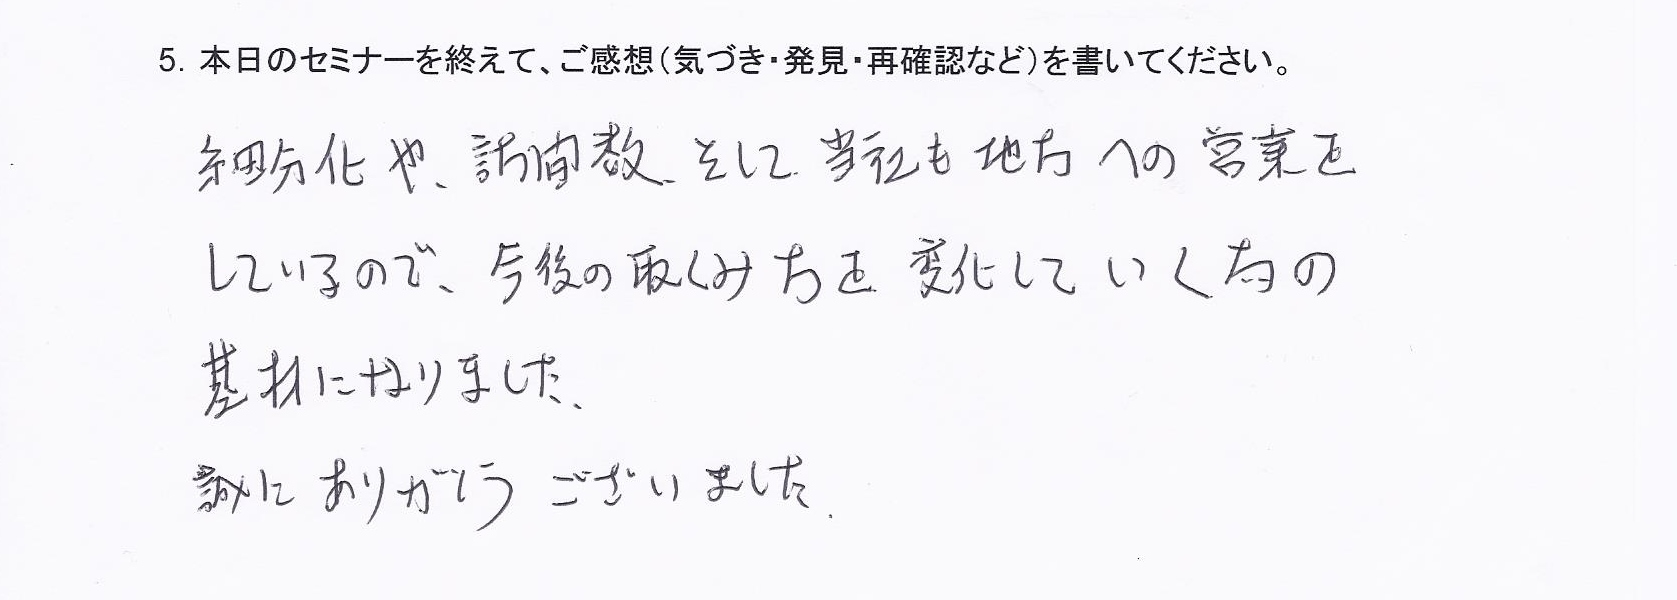 5. 本日のセミナーを終えて、ご感想(気づき・発見・再確認など)を書いてください。
細分化や、訪問数、そして当社も地方への営業を
しているので、今後の取くみ方を変化していく為の
基材になりました、
誠にありがとうございました.